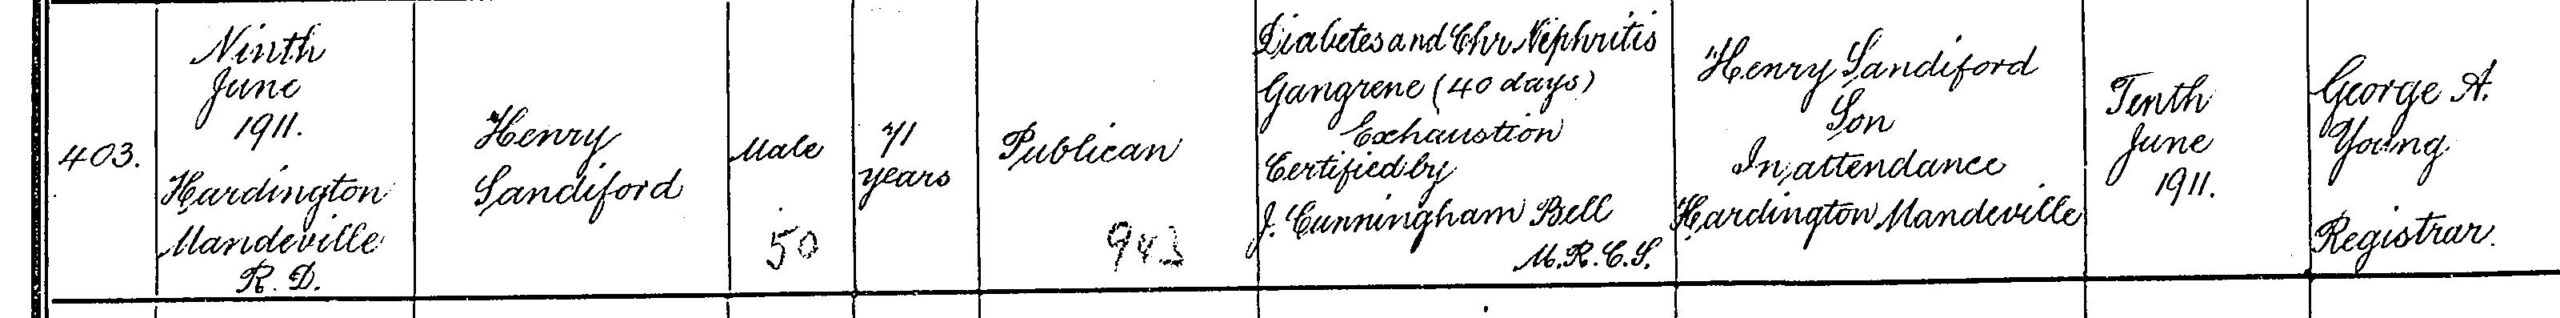 403.
Ninth
June
1911.
Hardington
Mandeville
R. D.
Henry
Sandiford
Male
50
71
years
Publican
943
Diabetes and Chr. Nephritis
Gangrene (40 days)
Exhaustion
Certified by
J. Cunningham Bell
M.R.C.S.
Henry Sandiford
Son
In attendance
Hardington Mandeville
Tenth
June
1911.
George A.
Young
Registrar.